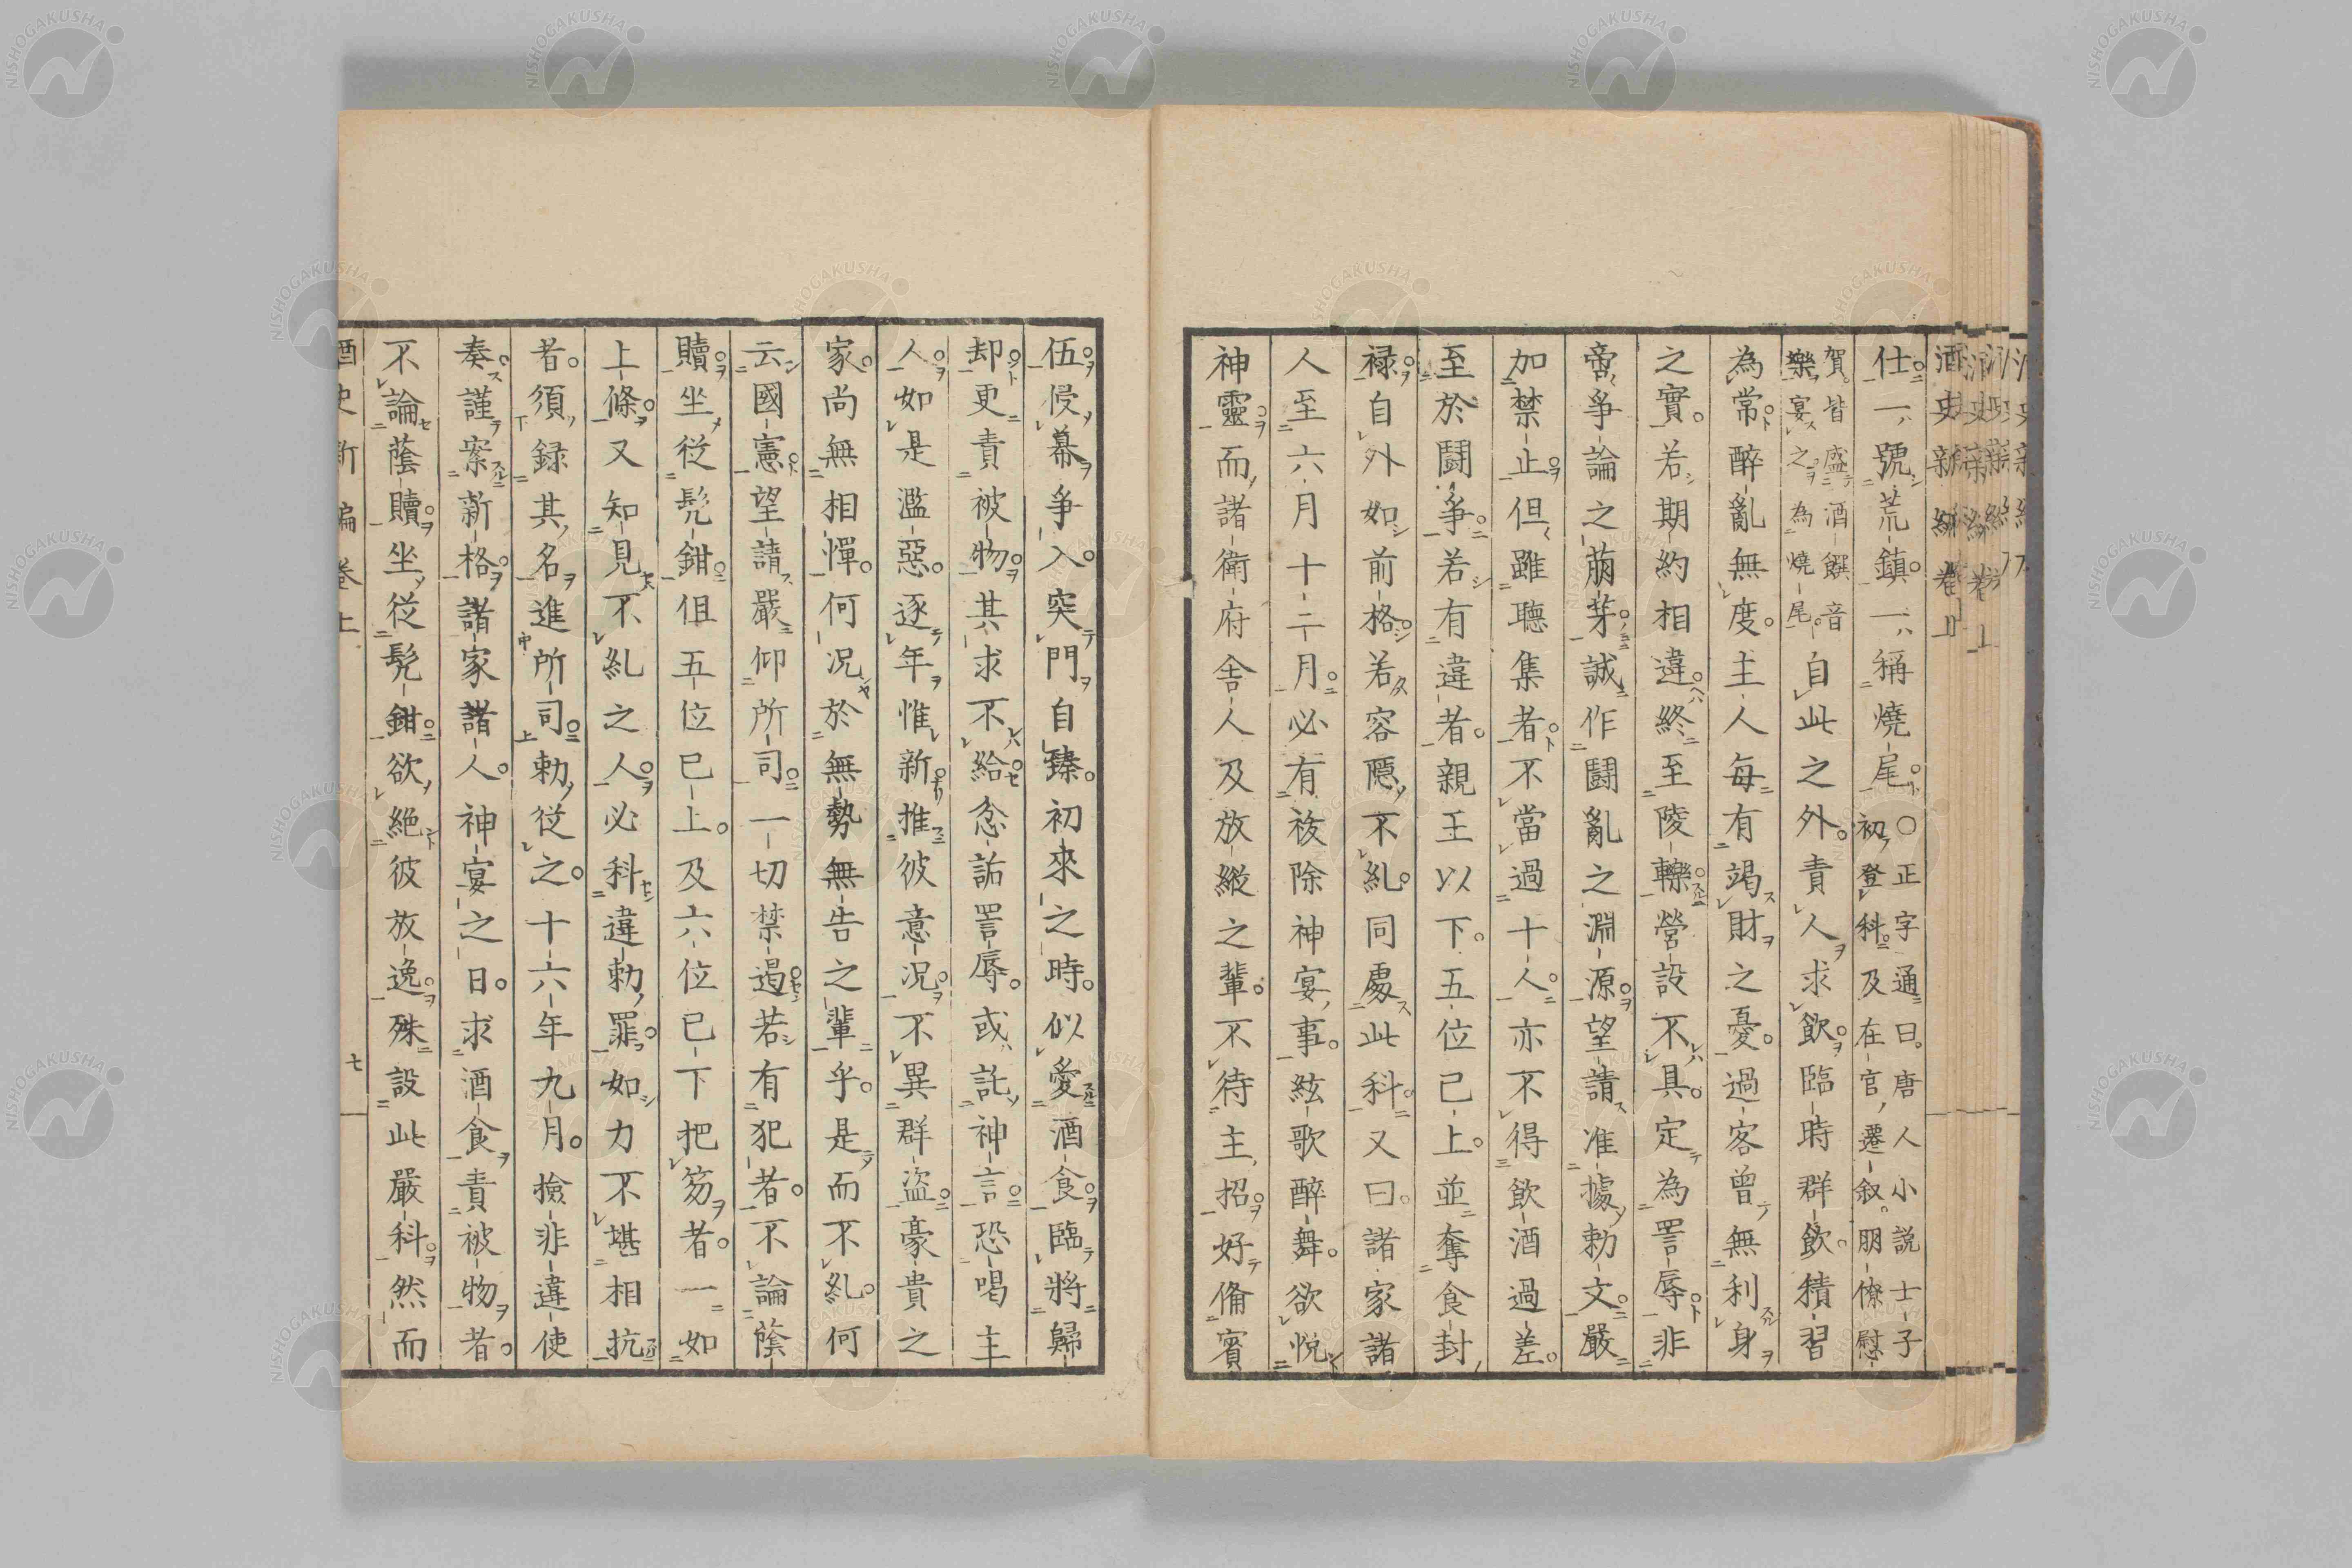 仕一號荒鎮一稱燒尾〇正字通曰唐人小説士子
初登科及在官遷叙朋僚慰
賀皆盛酒饌音
樂宴之為燒尾自此之外責人求飲臨時群飲積習
為常醉亂無度主人每有竭財之憂過客曾無利身
之實若期約相違終至陵轢營設不具定為詈辱非
啻爭論之萌芽誠作鬪亂之淵源望請准據勅文嚴
加禁止但雖聽集者不當過十人亦不得飲酒過差
至於鬪爭若有違者親王以下五位已上並奪食封
禄自外如前格若容隱不糺同處此科又曰諸家諸
人至六月十二月必有祓除神宴事絃歌醉舞欲悦
神靈而諸衛府舍人及放縱之輩不待主招好備賓
伍侵幕爭入突門自臻初來之時似愛酒食臨將歸
却更責被物其求不給忿詬詈辱或託神言恐喝主
人如是濫惡逐年惟新推彼意况不異群盗豪貴之
家尚無相憚何况於無勢無告之輩乎是而不糺何
云國憲望請嚴仰所司一切禁遏若有犯者不論蔭
贖坐從髠鉗但五位已上及六位已下把笏者一如
上條又知見不糺之人必科違勅罪如力不堪相抗
者須録其名進所司勅從之十六年九月撿非違使
奏謹案新格諸家諸人神宴之日求酒食責被物者
不論蔭贖坐從髠鉗欲絶彼放逸殊設此嚴科然而
酒史新編卷上
七
酒史新編卷上
NISHOGAKUSHA